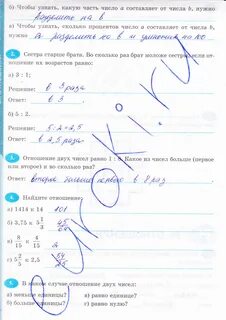 б) Чтобы узнать, какую часть число a составляет от числа b,
нужно разделить на b
в) Чтобы узнать, сколько процентов число a составляет от числа b,
нужно a разделить на b и умножить на 100
2. Сестра старше брата. Во сколько раз брат моложе сестры, если от-
ношение их возрастов равно:
а) 3 : 1;
Решение. в 3 раза
Ответ: в 3
б) 5 : 2.
Решение. 5:2=2,5
Ответ: в 2,5 раза
3. Отношение двух чисел равно 1 : 8. Какое из чисел больше (первое
или второе) и во сколько раз?
Ответ: второе больше первого в 8 раз
4. Найдите отношение:
а) 1414 к 14 101
б) 3,75 к 5 1/3 45/64
в) 8/15 к 4/15 2
г) 5 2/5 к 2,5 54/25
5. В каком случае отношение двух чисел:
а) меньше единицы? в) равно единице?
б) больше единицы? г) равно нулю?